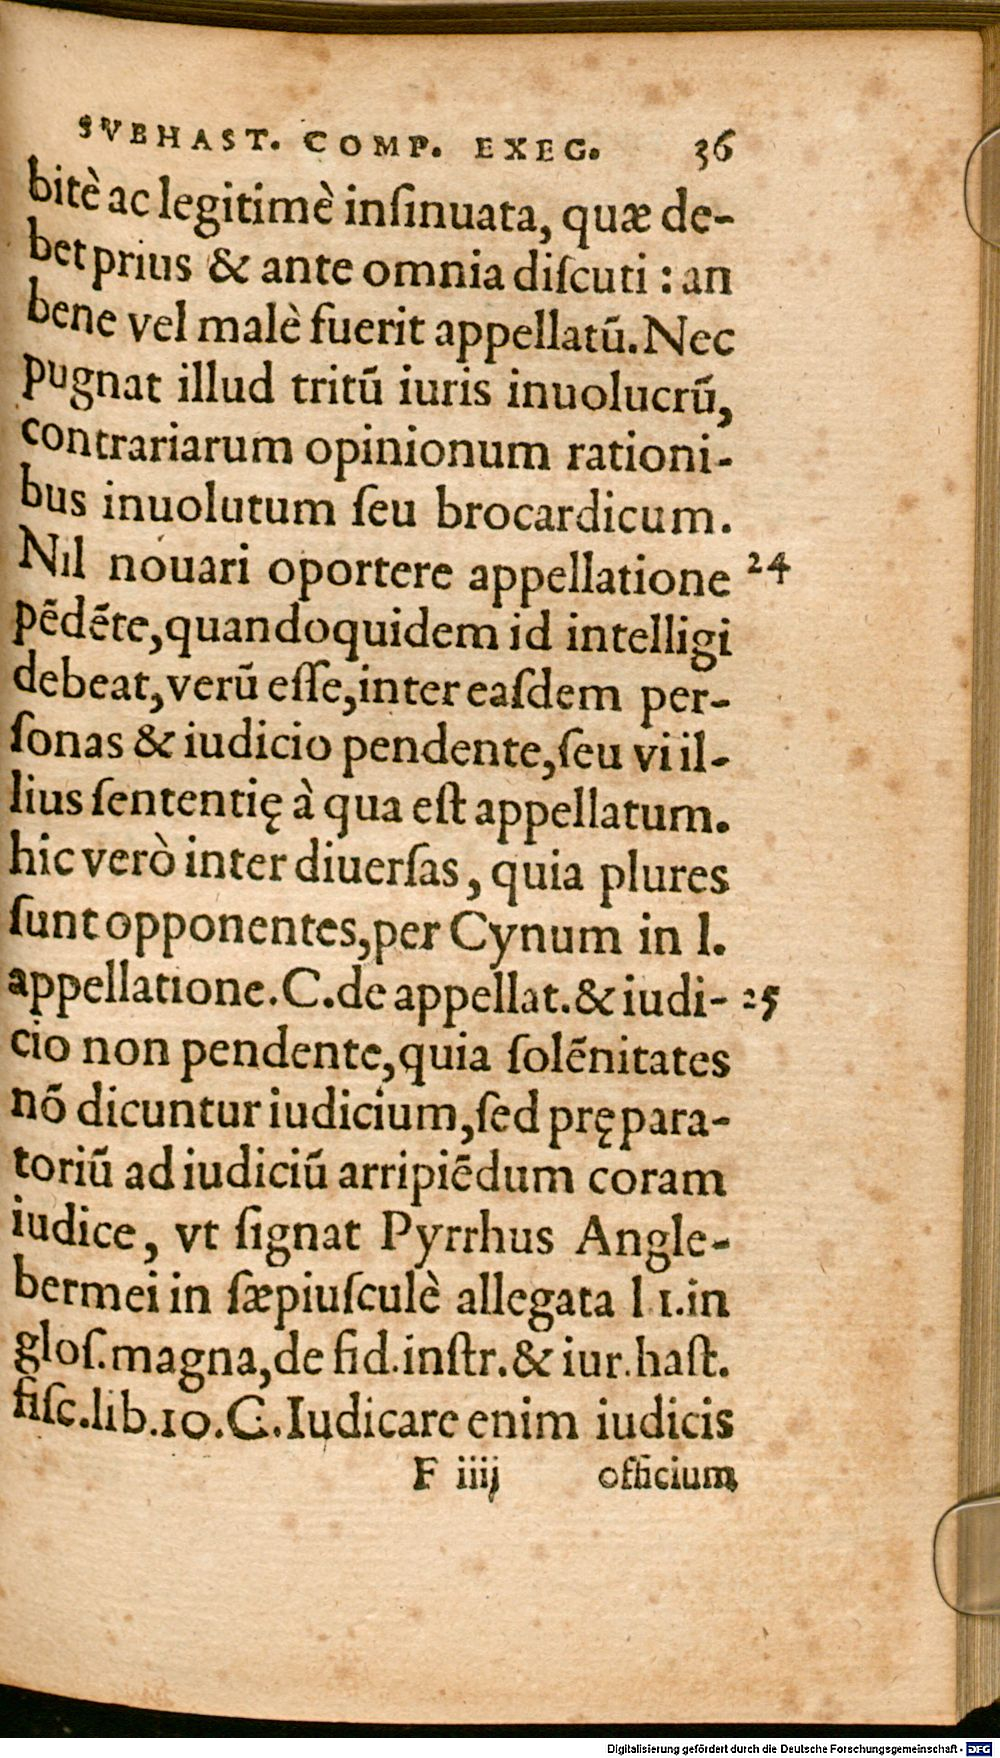 SVBHAST. COMP. EXEG. 36
bitè ac legitimè inſinuata, quæ de-
bet prius & ante omnia diſcuti : an
bene vel malè fuerit appellatū. Nec
pugnat illud tritū iuris inuolucrū,
contrariarum opinionum rationi-
bus inuolutum ſeu brocardicum.
Nil nouari oportere appellatione 24
pēdēte, quandoquidem id intelligi
debeat, verū eſſe, inter eaſdem per-
ſonas & iudicio pendente, ſeu vi il-
lius ſententię à qua eſt appellatum.
hic verò inter diuerſas, quia plures
ſunt opponentes, per Cynum in l.
appellatione. C. de appellat. & iudi- 25
cio non pendente, quia ſolēnitates
nō dicuntur iudicium, ſed prępara-
toriū ad iudiciū arripiēdum coram
iudice, vt ſignat Pyrrhus Angle-
bermei in ſæpiuſculè allegata l 1. in
gloſ. magna, de fid. inſtr. & iur. haſt.
fiſc. lib. 10. C. Iudicare enim iudicis
F iiij officium
Digitalisierung gefördert durch die Deutsche Forschungsgemeinschaft - DFG